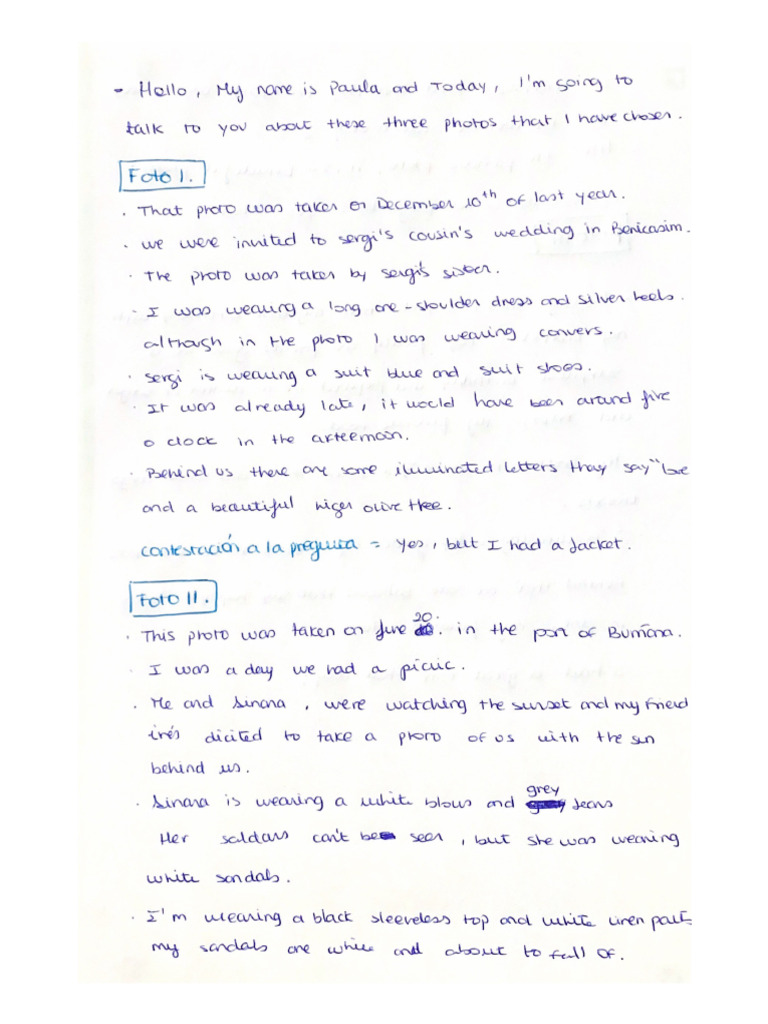 - Hello, My name is Paula and Today, I'm going to
talk to you about these three photos that I have chosen.
Foto I.
. That photo was taken on December 10th of last year.
. we were invited to sergi's cousin's wedding in Benicasim.
. The photo was taken by sergi's sister.
. I was wearing a long one-shoulder dress and silver heels.
although in the photo I was wearing convers.
. sergi is wearing a suit blue and suit shoes.
. It was already late, it would have been around five
o clock in the afteernoon.
. Behind us there are some illuminated letters they say "love
and a beautiful niger olive thee.
contestación a la pregunta = yes, but I had a Jacket.
Foto II.
. This photo was taken on June 20. in the port of Burriana.
. I was a day we had a picnic.
. Me and Ainara, were watching the sunset and my friend
inés dicited to take a photo of us with the sun
behind us.
. Ainara is wearing a white blows and grey Jeans
Her saldans can't be seen, but she was wearing
white sandals.
. I'm wearing a black sleeveless top and white linen pant
my sandals are white and about to fall of.